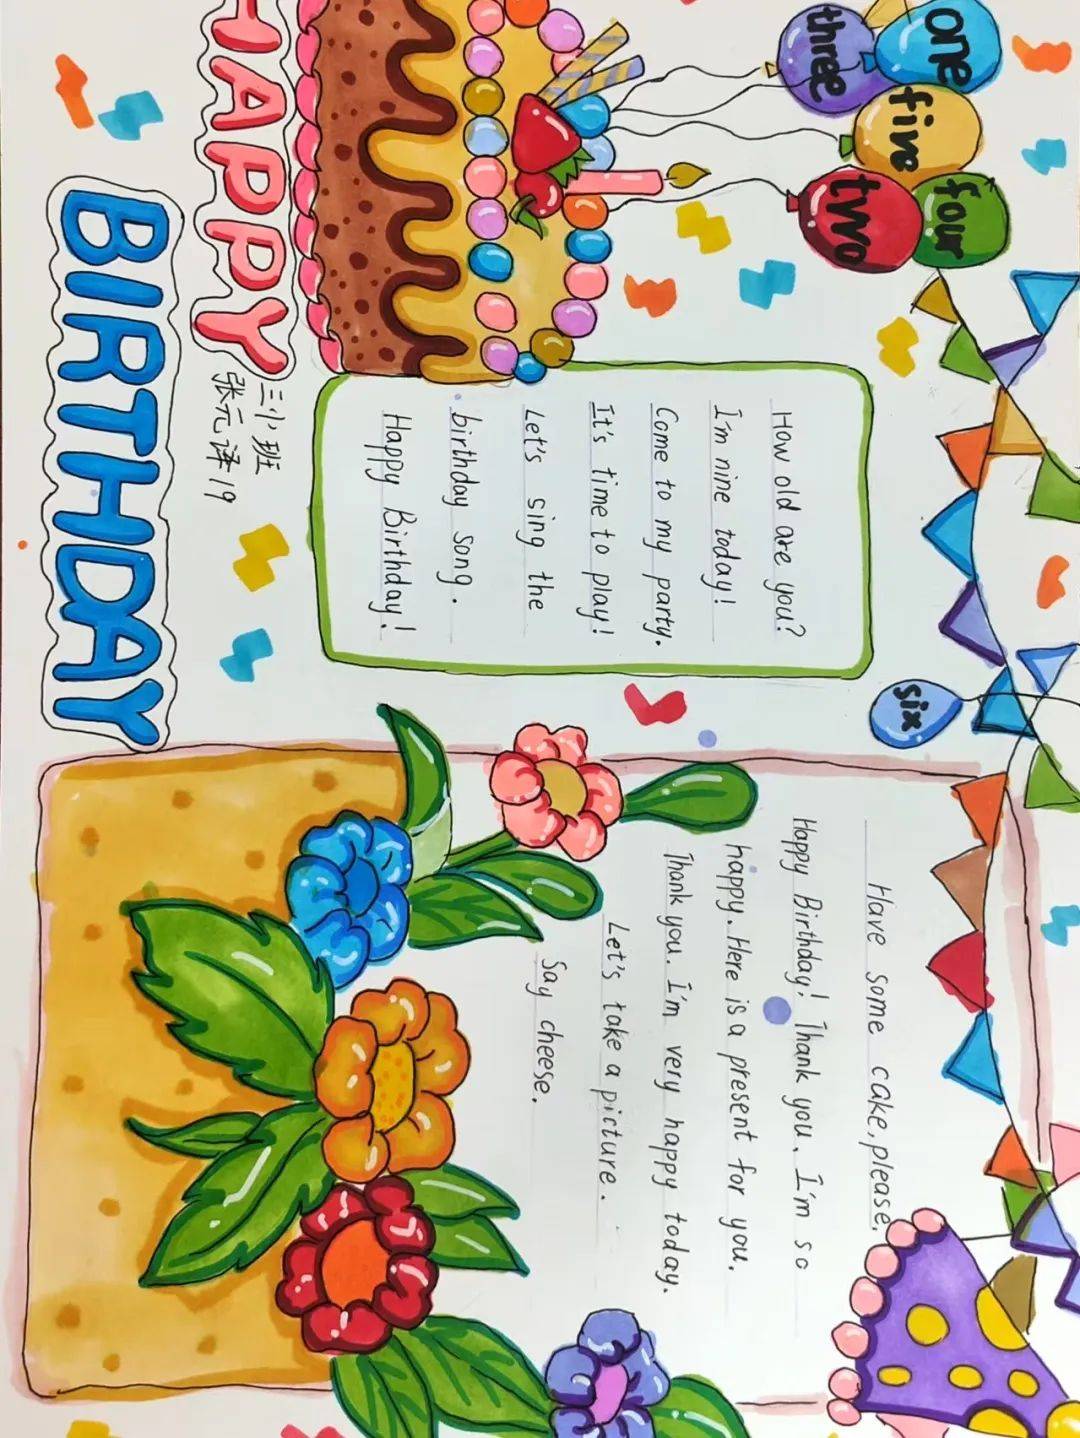 one
four
five
three
two
six
How old are you?
I'm nine today!
Come to my party.
It's time to play!
Let's sing the
birthday song.
Happy Birthday!
Have some cake, please.
Happy Birthday! Thank you. I'm so
happy. Here is a present for you.
Thank you. I'm very happy today.
Let's take a picture.
Say cheese.
HAPPY
三小班
张元译 19
BIRTHDAY